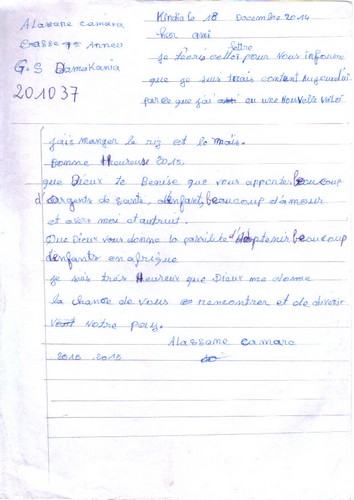 Alassane camara
Classe 7e Année
G.S Damakania
201037
Kindia le 18 Decembre 2014
Mon ami
lettre
Je t'ecris cette pour vous informe
que je suis trais content Aujourd'hui
parce que j'ai eu une nouvelle velo.
jais manger le riz et le maïs.
Bonne Heureuse 2015.
que Dieux te Benise que vous apportes beaucoup
d'argents de sante, d'enfant, beaucoup d'amour
et avec moi et autruit.
Que Dieux vous donne la possibilite d' beaucoup
d'enfants en afrique
Je suis très Heureux que Dieux me donne
la chance de vous rencontrer et de
votre pays.
Alassane camara
2015 2015